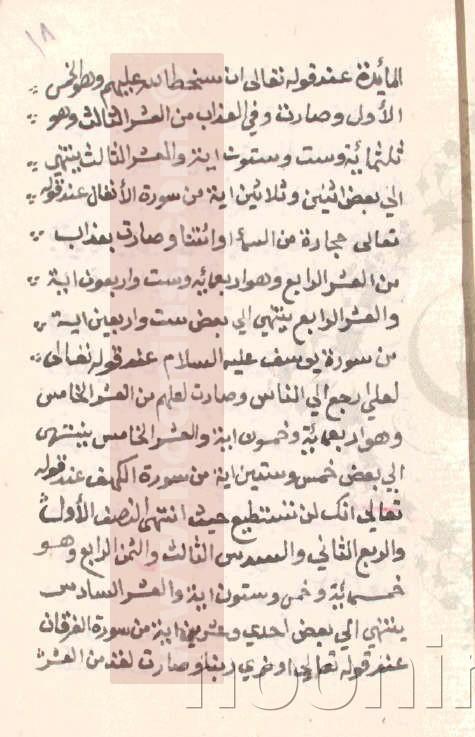 ١٨
المائدة عند قوله تعالى ان سخط الله عليهم وهو الخمس
الأول وصارت وفي العذاب من العشر الثالث وهو
ثلثمائة وست وستون اية والعشر الثالث ينتهي
الي بعض اثنين وثلاثين اية من سورة الأنفال عند قوله
تعالى حجارة من السماء او ائتنا وصارت بعذاب
من العشر الرابع وهو اربعمائه وست واربعون اية
والعشر الرابع ينتهي الي بعض ست واربعين اية
من سورة يوسف عليه السلام عند قوله تعالى
لعلي ارجع الي الناس وصارت لعلهم من العشر الخامس
وهو اربعمائة وخمسون اية والعشر الخامس ينتهي
الي بعض خمس وستين اية من سورة الكهف عند قوله
تعالي انك لن تستطيع حيث انتهى النصف الأول
والربع الثاني والسدس الثالث والثمن الرابع وهو
خمسمائة وخمس وستون اية والعشر السادس
ينتهي الي بعض احدي وعشرين اية من سورة الفرقان
عند قوله تعالى او نري ربنا وصارت لقد من العشر
noonir